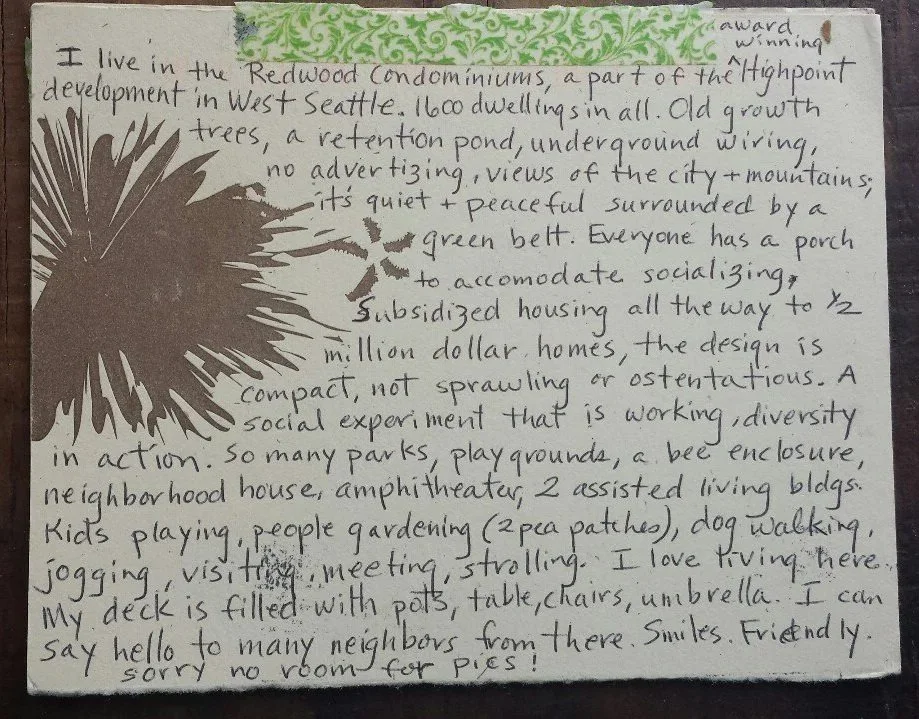 award
winning
I live in the Redwood Condominiums, a part of the ^Highpoint
development in West Seattle. 1600 dwellings in all. Old growth
trees, a retention pond, underground wiring,
no advertizing, views of the city + mountains;
it's quiet + peaceful surrounded by a
green belt. Everyone has a porch
to accomodate socializing,
Subsidized housing all the way to 1/2
million dollar homes, the design is
compact, not sprawling or ostentatious. A
social experiment that is working, diversity
in action. So many parks, playgrounds, a bee enclosure,
neighborhood house, amphitheater, 2 assisted living bldgs.
Kids playing, people gardening (2 pea patches), dog walking,
jogging, visiting, meeting, strolling. I love living here.
My deck is filled with pots, table, chairs, umbrella. I can
say hello to many neighbors from there. Smiles. Friendly.
sorry no room for pics!